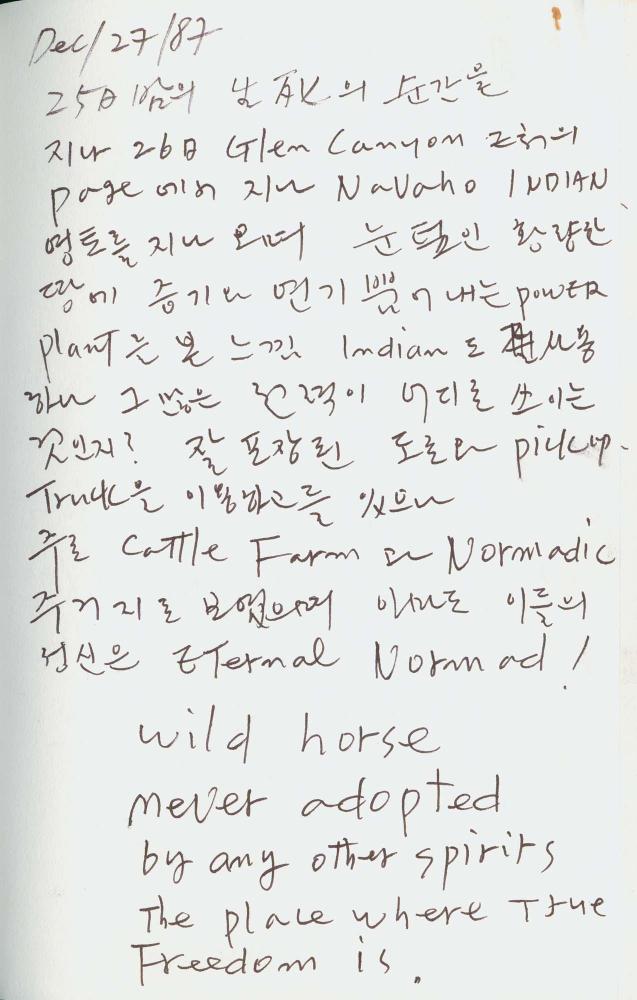 Dec/27/87
25日 밤의 生死의 순간을
지나 26日 Glen Canyon 근처의
page 에서 지나 NaVaho INDIAN
영토를 지나 오며 눈덮인 황량한
땅에 증기와 연기 뿜어 내는 powER
plant 를 본 느낌 Indian 도 사용
하나 그 많은 전력이 어디로 쓰이는
것인지? 잘 포장된 도로와 pickup
Truck을 이용하고들 있으나
주로 Cattle Farm 과 Normadic
주거지로 보였으며 아마도 이들의
정신은 ETernal Normad!
wild horse
never adopted
by any other spirits
The place where True
Freedom is.